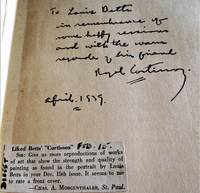 To Louis Betts
in remembrance of
some happy sessions
and with the warm
regards of his friend
Royal Cortissoz
April. 1939.
Liked Betts' "Cortissoz"
SIR: Give us more reproductions of works
of art that show the strength and quality of
painting as found in the portrait by Louis
Betts in your Dec. 15th issue. It seems to me
to rate a front cover.
—CHAS. A. MORGENTHALER, St. Paul.